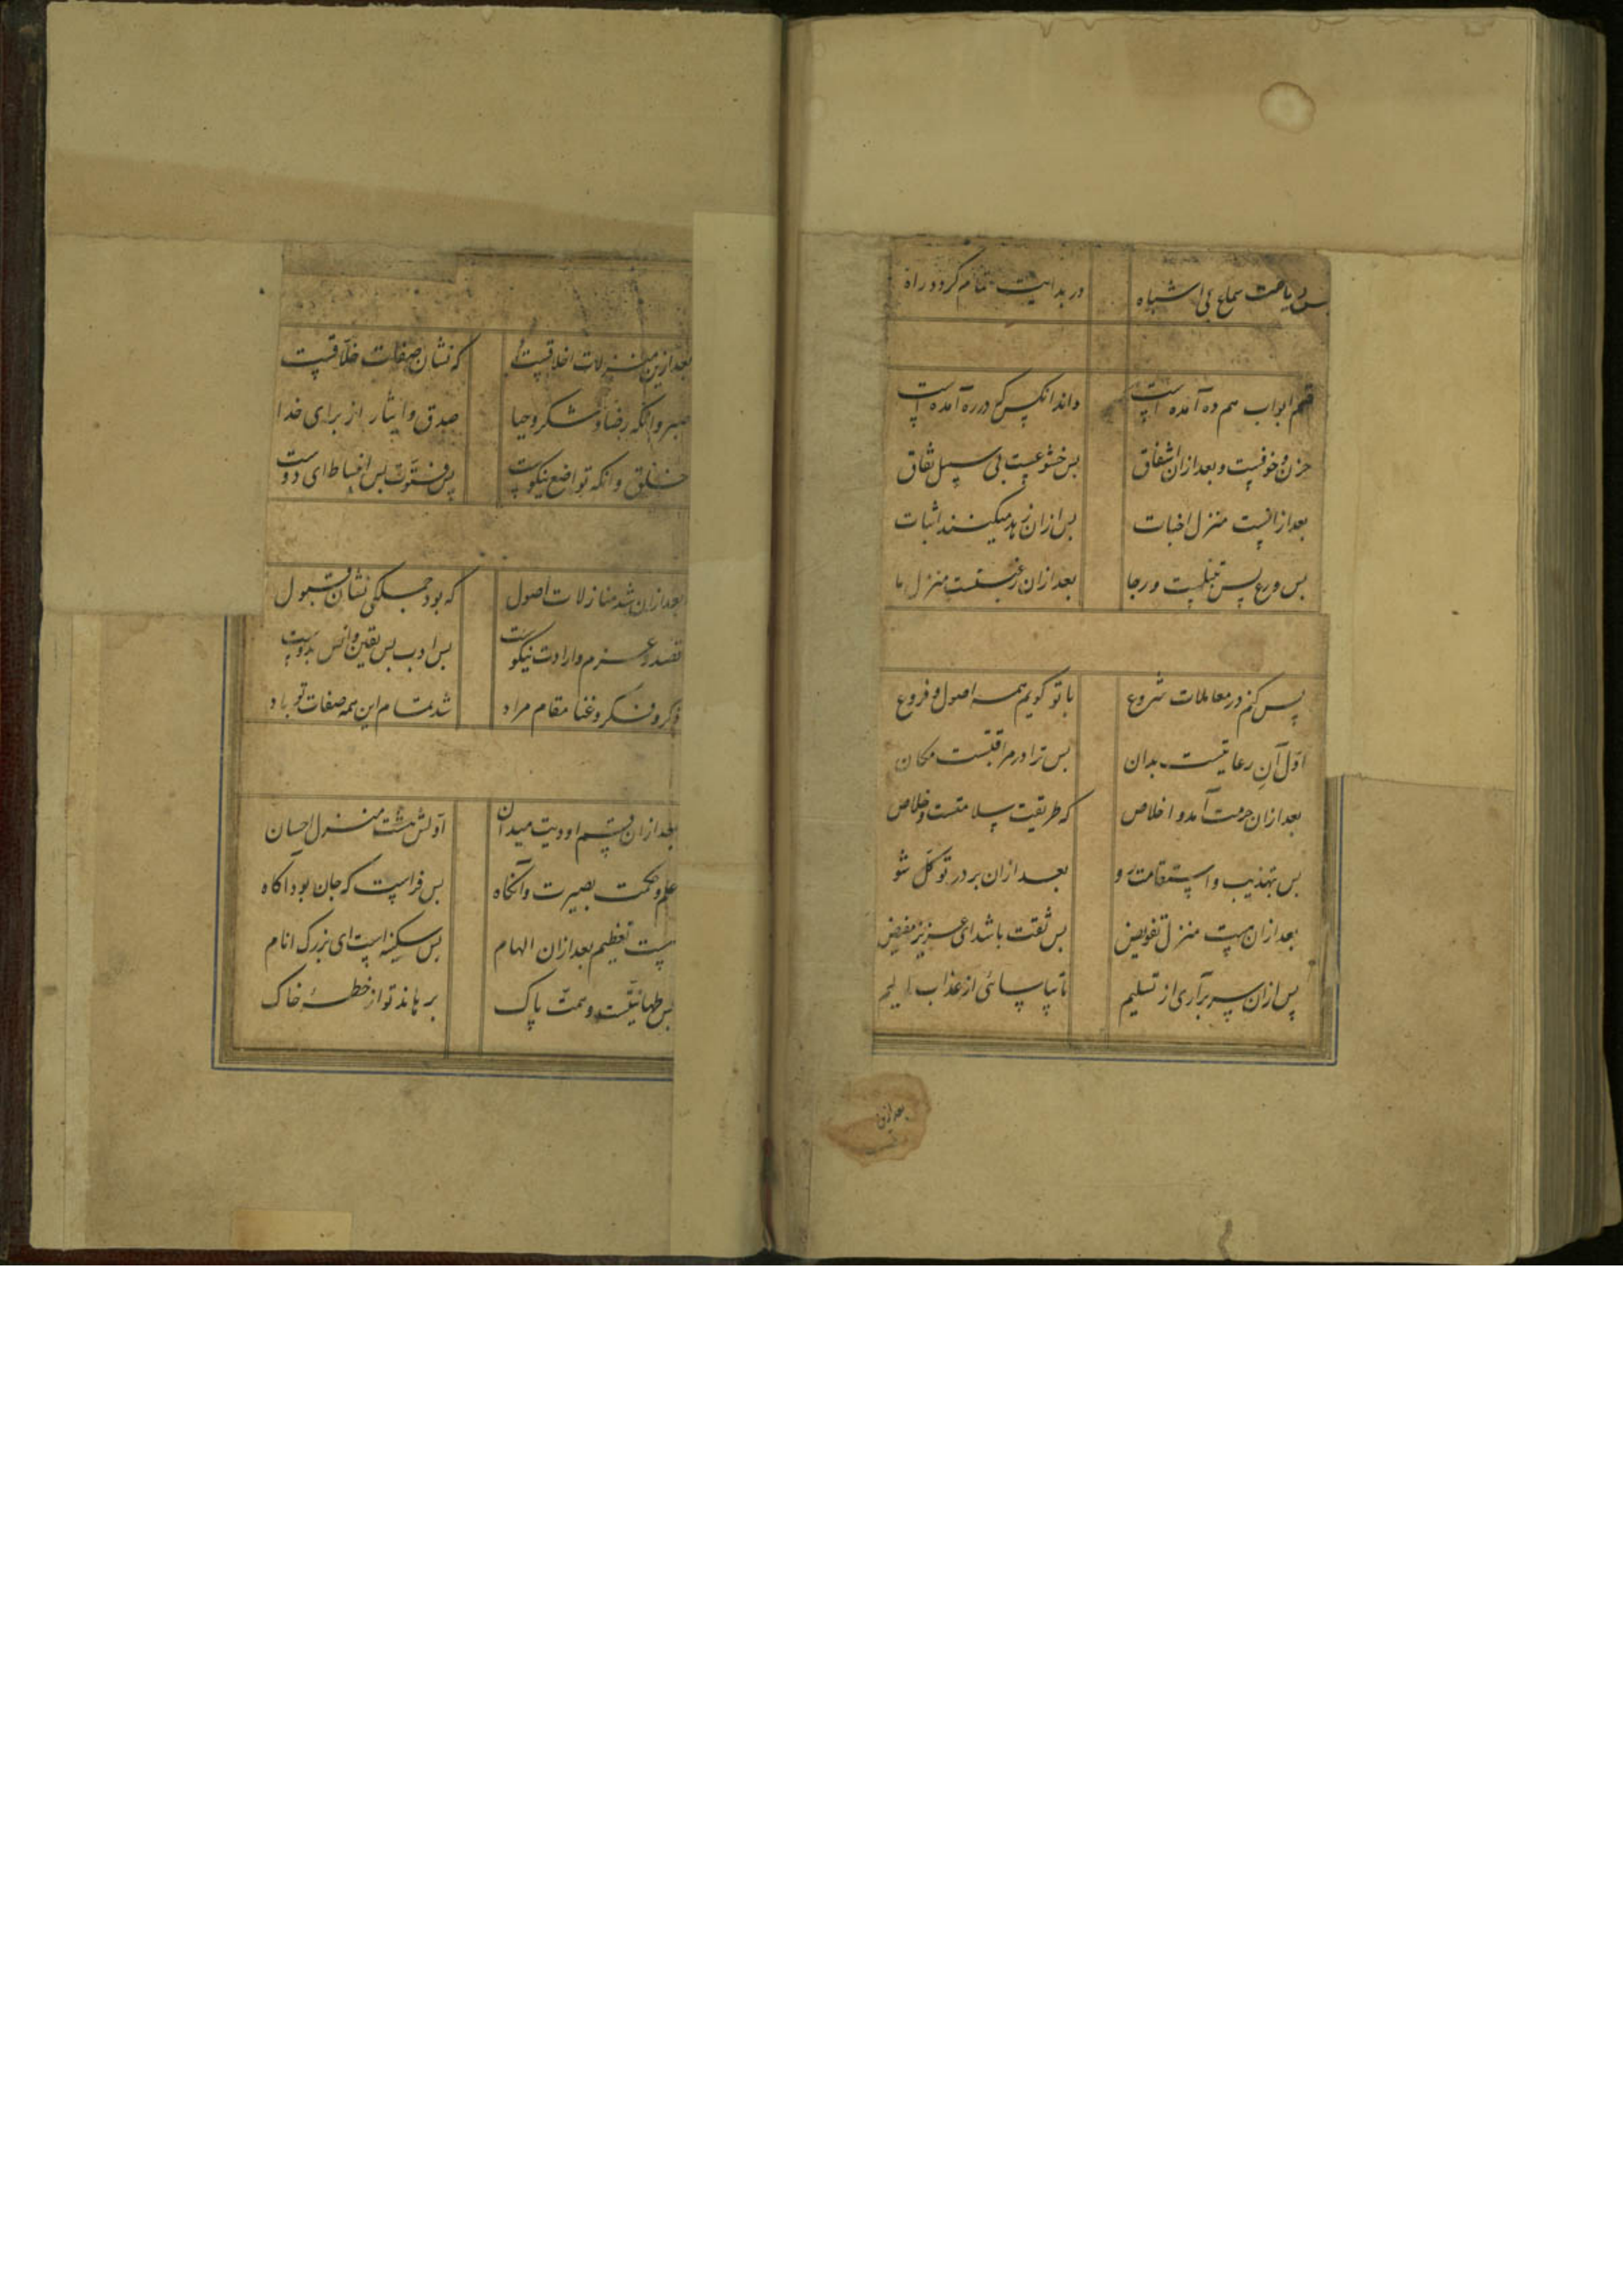 پس ریاضت سماع بی اشباه در بدایت تمام کرد و راه
قسم ابواب هم ده آمده است داند آنکس که در ره آمده است
حزن و خوفست و بعد ازان اشفاق بس خشوعست بی سبیل نفاق
بعد ازانست منزل اخبات بس ازان زهد میکنند اثبات
بس ورع پس تبتلست و رجا بعد ازان رغبتست منزل ما
پس کنم در معاملات شروع با تو کویم همه اصول و فروع
اول آن رعایتست بدان بس ترا در مراقبتست مکان
بعد ازان حرمت آمد و اخلاص که طریقت سلامتست و خلاص
بس تهذیب و استقامت رو بعد ازان بر در توکل شو
بعد ازان هست منزل تفویض بس ثقت باشد ای عزیز مفیض
پس ازان سر برآری از تسلیم تا بیاسائی از عذاب الیم
بعد ازین
بعد ازین منزلات اخلاقیست که نشان صفات خلاقیست
صبر وانکه رضا و شکر و حیا صدق و ایثار از برای خدا
خلق وانکه تواضع نیکوست پس فتوت بس انبساط ای دوست
بعد ازان شد منازلات اصول که بود جملکی نشان قبول
قصد و عزم و ارادت نیکوست بس ادب بس یقین و انس بدوست
ذکر و فکر و غنا مقام مراد شد تمام این همه صفات تو باد
بعد ازان قسم اودیت میدان اولش هشت منزل احسان
علم و حکمت بصیرت وانکاه بس فراست که جان بود آکاه
هست تعظیم بعد ازان الهام بس سکینه است ای بزرک انام
بس طمانینتست و همت پاک برهاند تو از خطهٔ خاک